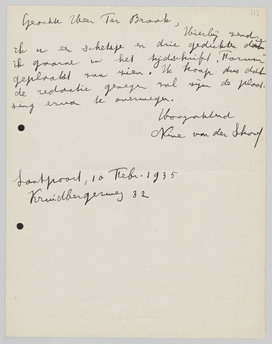 Geachte Heer Ter Braak,
Hierbij zend
ik u een schetsje en drie gedichten die
ik gaarne in het tijdschrift Forum
geplaatst zou zien. Ik hoop dus dat
de redactie genegen zal zijn de plaat-
sing ervan te overwegen.
Hoogachtend
Nine van der Schaaf
Santpoort, 10 Febr. 1935
Kruidbergerweg 32